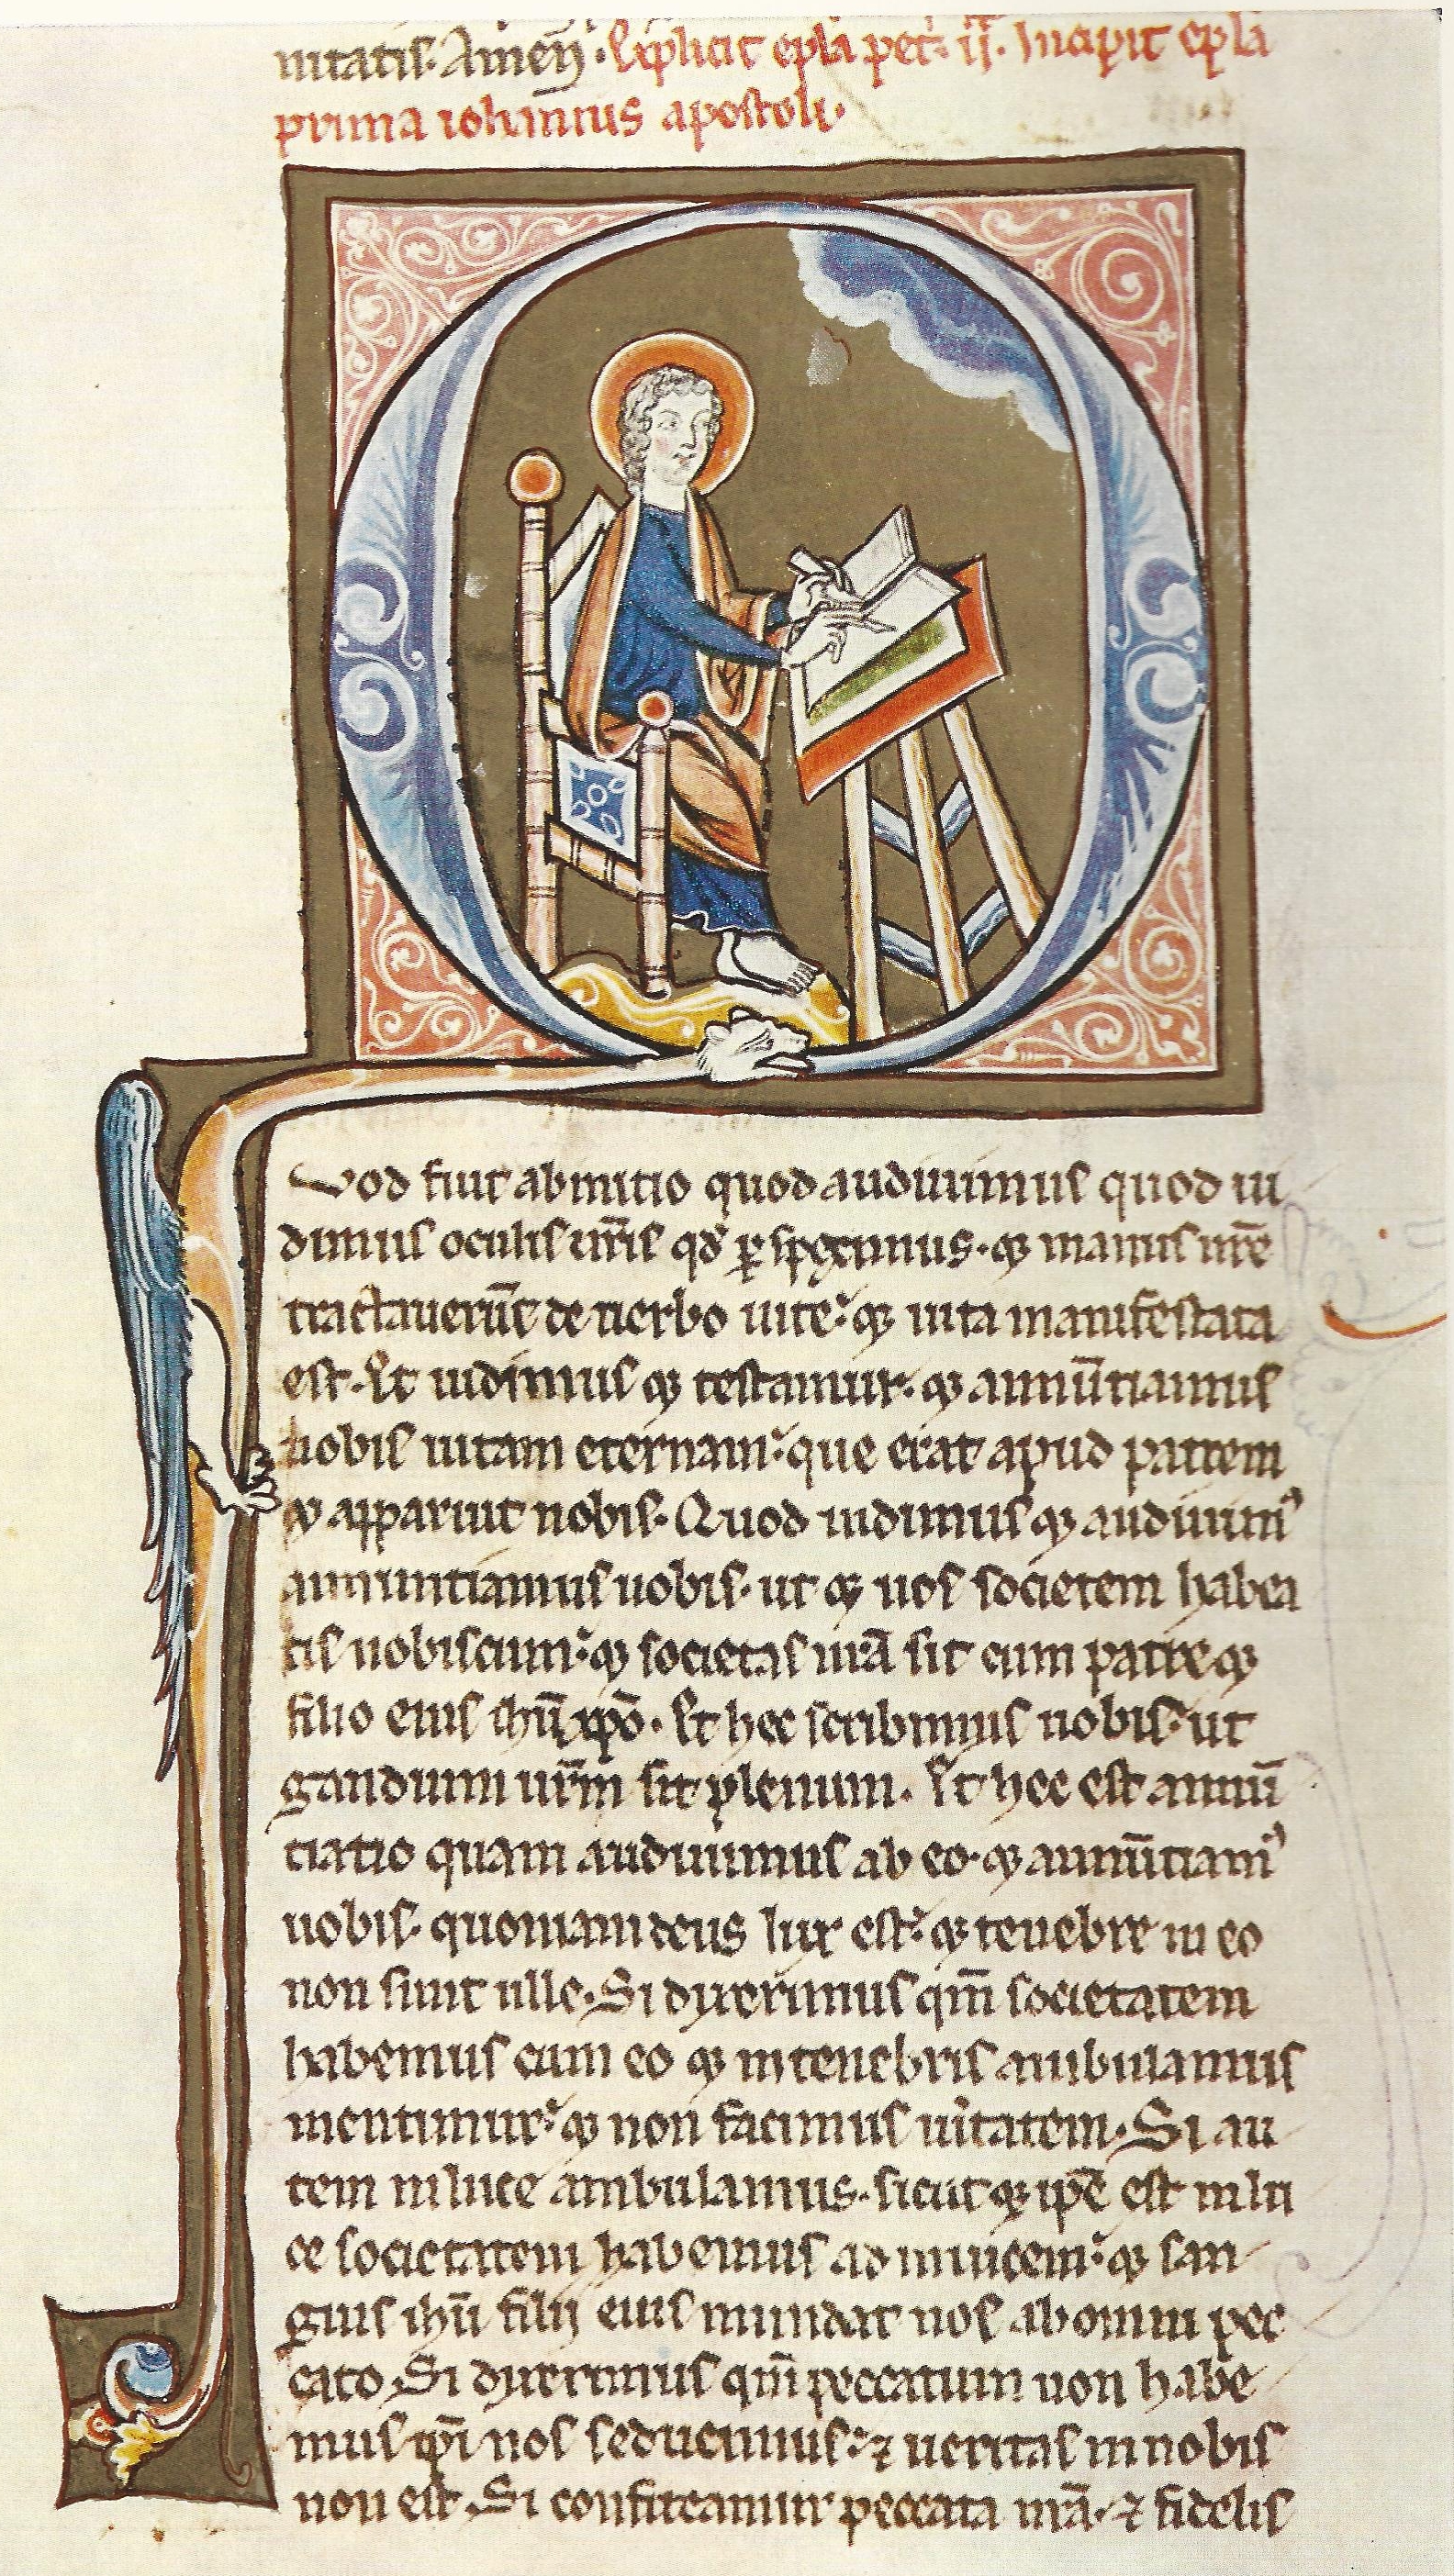 nitatis. Amen. Explicit epła pet. ii. Incipit epła
prima iohannis apostoli.
Quod fuit ab initio quod audiuimus quod ui
dimus oculis nr̄is qđ ꝑspeximus. ⁊ manus nr̄e
tractauerūt de uerbo uite: ⁊ uita manifestata
est. Et uidimus ⁊ testamur. ⁊ annūtiamus
uobis uitam eternam: que erat apud patrem
⁊ apparuit nobis. Quod uidimus ⁊ audiuimꝰ
annuntiamus uobis. ut ⁊ uos societem habea
tis nobiscum: ⁊ societas nr̄a sit cum patre ⁊
filio eius ihū xp̄o. Et hec scribimus uobis. ut
gaudium ur̄m sit plenum. Et hec est annū
tiatio quam audiuimus ab eo. ⁊ annūtiamꝰ
uobis. quoniam deus lux est: ⁊ tenebre in eo
non sunt ulle. Si dixerimus qm̄ societatem
habemus cum eo ⁊ in tenebris ambulamus
mentimur: ⁊ non facimus uitatem. Si au
tem in luce ambulamus. sicut ⁊ ip̄e est in lu
ce societatem habemus ad inuicem: ⁊ san
guis ihū filij eius mundat nos ab omni pec
cato. Si dixerimus qm̄ peccatum non habe
mus ip̄i nos seducimus: ⁊ ueritas in nobis
non est. Si confiteamur peccata nr̄a. ⁊ fidelis